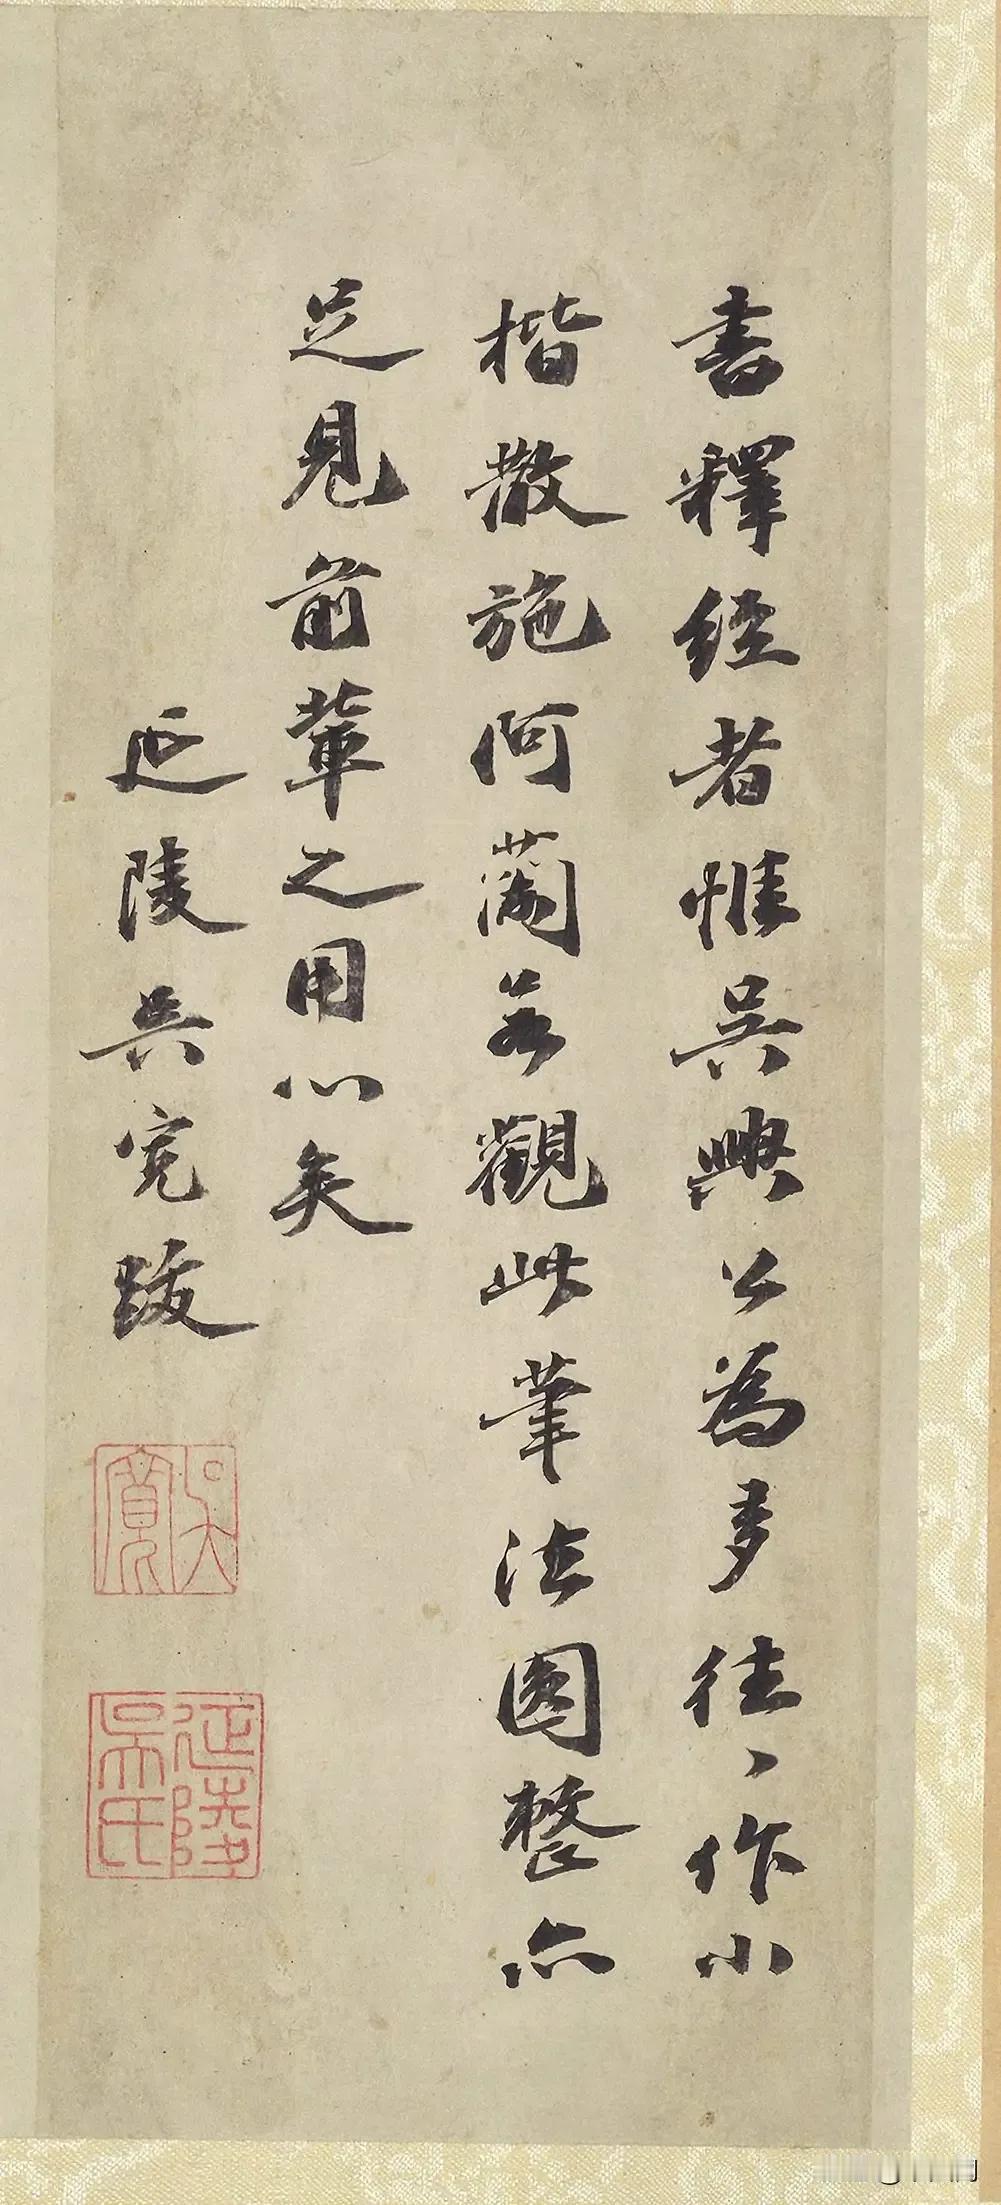 書釋經者惟吳興公為多往〻作小
楷散施阿蘭若觀此筆法圓整亦
足見前輩之用心矣
延陵吳寬跋
吳寬
延陵吳氏